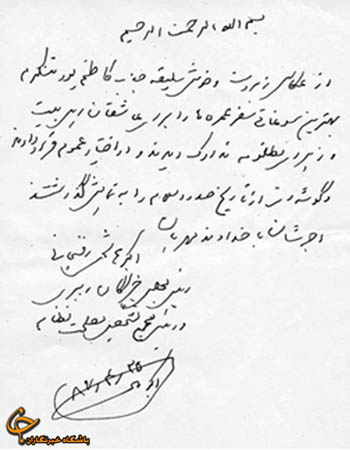 بسم الله الرحمن الرحیم
از عکاس زبردست و خوش سلیقه جناب کاظم پور متشکرم
بهترین سوغاتی سفر عمره ما را برای عاشقان اهل بیت
و زهرای مظلومه تدارک دیدند و در اختیار عموم قرار دادند
و گوشه ای از تاریخ صدر اسلام را به نمایش گذاشتند
اجرشان با خداوند مهربان
اکبر هاشمی رفسنجانی
رئیس مجلس خبرگان رهبری
و رئیس مجمع تشخیص مصلحت نظام
باشگاه خبرنگاران